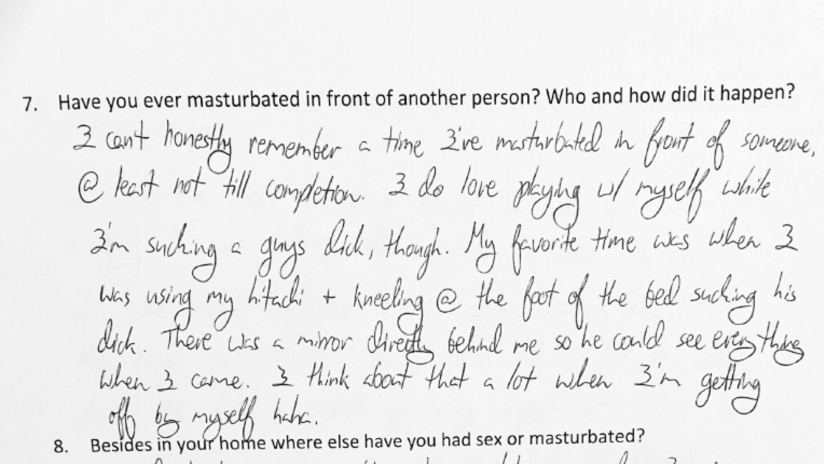 7. Have you ever masturbated in front of another person? Who and how did it happen?
I can't honestly remember a time I've masturbated in front of someone,
@ least not till completion. I do love playing w/ myself while
I'm sucking a guys dick, though. My favorite time was when I
was using my hitachi + kneeling @ the foot of the bed sucking his
dick. There was a mirror directly behind me so he could see everything
when I came. I think about that a lot when I'm getting
off by myself haha.
8. Besides in your home where else have you had sex or masturbated?